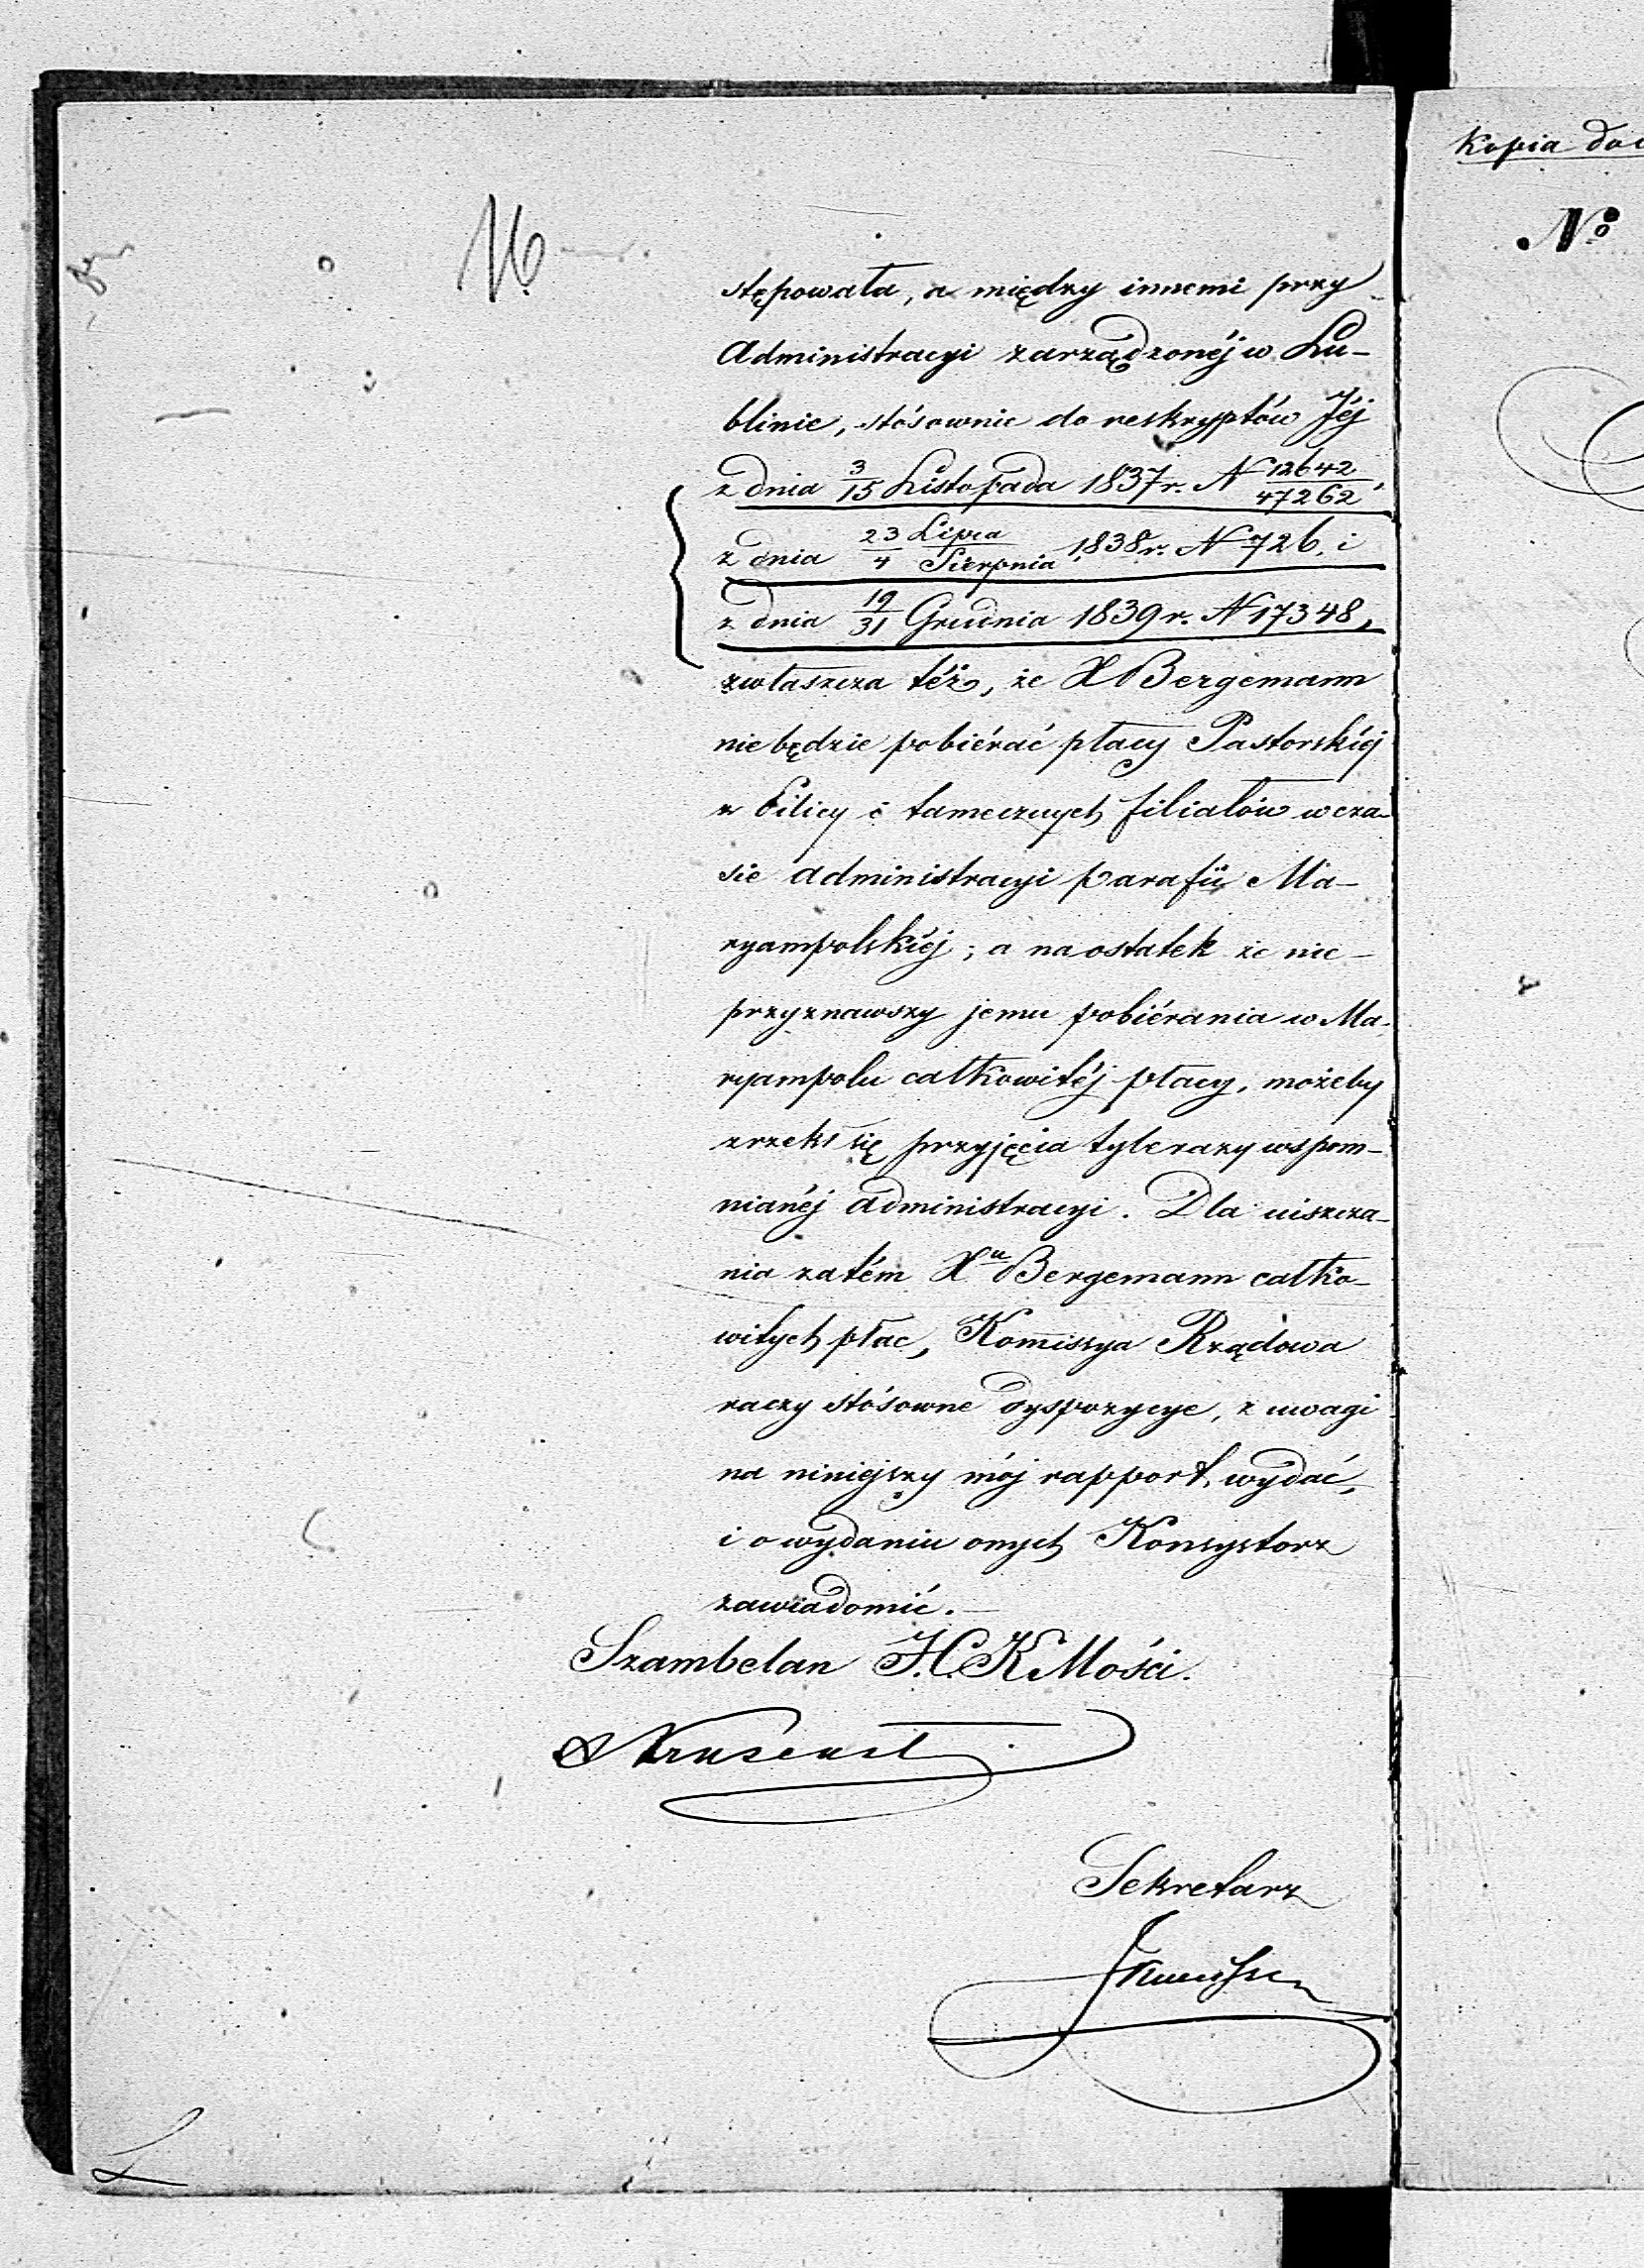 16
stępowała, a między innemi przy
Administracyi zarządzonéj w Lu-
blinie, stósownie do reskryptów Jéj
z dnia 3/15 Listopada 1837 r. N 12642/47262,
z dnia 23 Lipca/4 Sierpnia 1838 r. N 726. i
z dnia 19/31 Grudnia 1839 r. N 17348,
zwłaszcza téż, że X Bergemann
nie będzie pobiérać płacy Pastorskiéj
z Pilicy i tamecznych filialów w cza-
sie administracyi parafii Ma-
ryampolskiéj; a na ostatek że nie-
przyznawszy jemu pobiérania w Ma-
ryampolu całkowitéj płacy, możeby
zrzekł się przyjęcia tylerazy wspom-
nianéj administracyi. Dla uiszcza-
nia zatém Xu Bergemann całko-
witych płac, Kommissya Rządowa
raczy stósowne dyspozycye, z uwagi
na niniejszy mój rapport, wydać,
i o wydaniu onych Konsystorz
zawiadomić.—
Szambelan J.C.K Mości.
Sekretarz
Kopia
No